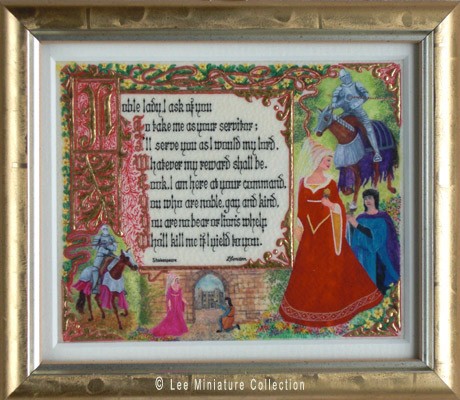 Noble lady, I ask of you
To take me as your servitor;
I'll serve you as I would my lord,
Whatever my reward shall be.
Look, I am here at your command,
You who are noble, gay and kind,
You are no bear or lion's whelp
Who'll kill me if I yield to you.
Shakespeare
© Lee Miniature Collection